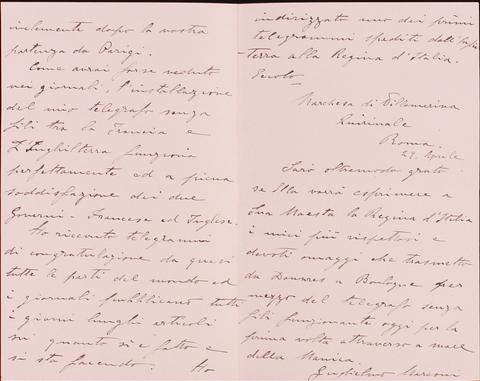 inclemente dopo la nostra
partenza da Parigi.
Come avrai forse veduto
nei giornali, l'installazione
del mio telegrafo senza
fili tra la Francia e
L'Inghilterra funziona
perfettamente ed a piena
soddisfazione dei due
Governi - Francese ed Inglese.
Ho ricevuto telegrammi
di congratulazione da quasi
tutte le parti del mondo ed
i giornali pubblicano tutti
i giorni lunghi articoli
su quanto si è fatto e
si sta facendo. Ho
indirizzato uno dei primi
telegrammi spediti dall'Inghil-
terra alla Regina d'Italia.
Eccolo
Marchesa di Villamarina
Quirinale
Roma.
29 Aprile
Sarò oltremodo grato
se Ella vorrà esprimere a
Sua Maestà la Regina d'Italia
i miei più rispettosi e
devoti omaggi che trasmetto
da Douvres a Boulogne per
mezzo del telegrafo senza
fili funzionante oggi per la
prima volta attraverso a mare
della Manica.
Guglielmo Marconi